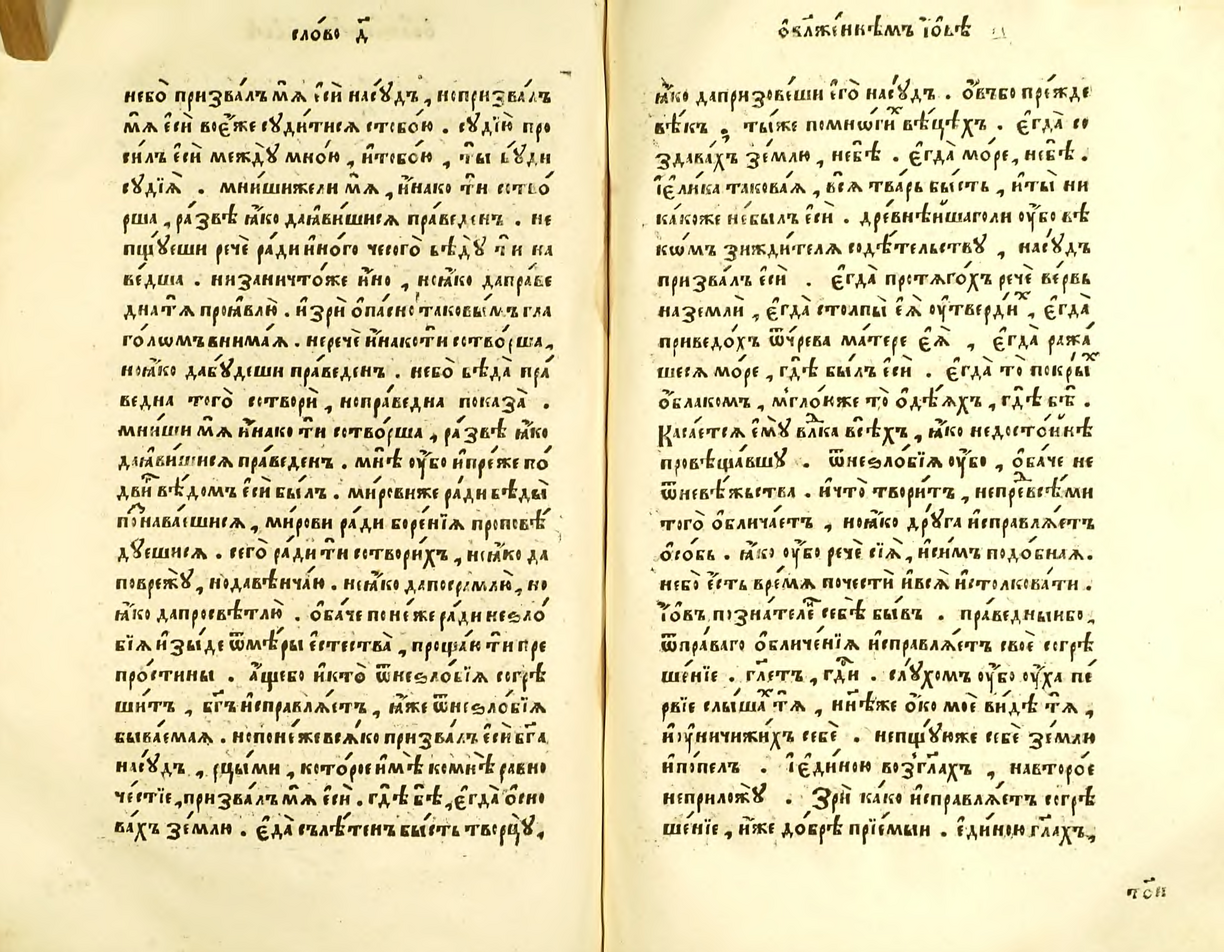 сло́во д҃
небо̀ призва́лъ мѧ̀ є҆сѝ насꙋ́дъ , нопризва́лъ
мѧ̀ є҆сѝ воє҆́же сꙋди́тисѧ стобо́ю . сꙋдїю̀ про
си́лъ є҆сѝ междꙋ̀ мно́ю , и҆тобо́ю , ты̀ бꙋ́ди
сꙋдїѧ̀ . мни́шижели мѧ̀ , и҆на́ко тѝ сотво́
рша , ра́звѣ ꙗ҆́ко даꙗ҆ви́шисѧ пра́веденъ . не
пщꙋ́еши речѐ ради и҆но́го чесого̀ бѣдꙋ̀ тѝ на
ве́дша . низаничто́же и҆́но , ноꙗ҆́ко даправе
дна тѧ̀ проꙗ҆влю̀ . и҆зрѝ ѻ҆па́сно таковы́мъ гла
го́лѡмъ внима́ѧ . неречѐ и҆на́ко тѝ сотво́рша ,
ноꙗ҆́ко дабꙋ́деши пра́веденъ . небо̀ бѣда̀ пра́
ведна того̀ сотворѝ , нопра́ведна показа̀ .
мни́ши мѧ̀ и҆на́ко тѝ сотво́рша , ра́звѣ ꙗ҆́ко
даꙗ҆ви́шисѧ пра́веденъ . мнѣ̀ ᲂу҆́бо и҆пре́же по́
дви҃ вѣ́домъ є҆сѝ бы́лъ . ми́ровиже ради бѣды̀
познава́ешисѧ , ми́рови ра́ди боре́нїѧ проповѣ́
дꙋешисѧ . сего̀ ра́ди тѝ сотвори́хъ , неꙗ҆́ко да
поврежꙋ̀ , нодавѣнча́ю . неꙗ҆́ко дапосрамлю̀ , но
ꙗ҆́ко дапросвѣтлю̀ . ѻ҆ба́че поне́же ра́ди неѕло́
бїѧ и҆зы́де ѿмѣ́ры є҆стества̀ , проща́ю тѝ пре
про́стины . а҆́щебо и҆кто̀ ѿнеѕло́бїѧ согрѣ
ши́тъ , бг҃ъ и҆справлѧ́етъ , ꙗ҆́же ѿнеѕло́бїѧ
быва́емаѧ . нопоне́же всѧ́ко призва́лъ є҆сѝ бг҃а
насꙋ́дъ , рцы́ми , кото́рое и҆мѣ̀ комнѣ̀ равно
че́стїе , призва́лъ мѧ̀ є҆сѝ . гдѣ̀ бѣ̀ , є҆гда̀ ѻ҆сно
ва́хъ зе́млю . є҆да̀ съвлѣ́тенъ бы́сть творцꙋ̀ ,
ѻ҆бл҃же́ннѣмъ і҆́овѣ
ꙗ҆́ко дапризове́ши є҆го̀ насꙋ́дъ . ѻ҆въбо пре́жде
вѣ́къ , ты́же помно́ги́хъ вѣ́цѣхъ . є҆гда̀ со
здава́хъ зе́млю , небѣ̀ . є҆гда̀ мо́ре , небѣ̀ .
і҆є҆ли́ка такова́ѧ , всѧ̀ тва́рь бы́сть , и҆ты̀ ни
ка́коже небы́лъ є҆сѝ . древнѣ́йшаголи ᲂу҆́бо вѣ́
кѡмъ зижди́телѧ содѣ́тельствꙋ , насꙋ́дъ
призва́лъ є҆сѝ . є҆гда̀ протѧго́хъ речѐ ве́рвь
наземлѝ , є҆гда̀ столпы̀ є҆ѧ̀ ᲂу҆тверди́хъ , є҆гда̀
приведо́хъ ѿчре́ва ма́тере є҆ѧ̀ , є҆гда̀ ража́
шесѧ мо́ре , гдѣ̀ бы́лъ є҆сѝ . є҆гда̀ то̀ покры́хъ
ѻ҆́блакомъ , мгло́юже то̀ ѻ҆дѣ́ѧхъ , гдѣ̀ бѣ̀ .
Каса́етсѧ є҆мꙋ̀ влⷣка всѣ́хъ , ꙗ҆́ко недосто́йнѣ
провѣща́вшꙋ . ѿнеѕло́бїѧ ᲂу҆́бо , ѻ҆ба́че не
ѿневѣ́жьства . и҆что̀ твори́тъ , непре́дⷣ всѣ́ми
того̀ ѻ҆блича́етъ , ноꙗ҆́ко дрꙋ́га и҆справлѧ́етъ
ѻ҆со́бь . ꙗ҆́ко ᲂу҆́бо речѐ сїѧ̀ , и҆си́мъ подо́бнаѧ .
небо̀ є҆́сть вре́мѧ почестѝ и҆всѧ̀ и҆столкова́ти .
І҆́овъ позна́тель себѣ̀ бы́въ . пра́ведныибо
ѿпра́ваго ѻ҆бличе́нїѧ и҆справлѧ́етъ своѐ согрѣ
ше́нїе . гл҃етъ , гдⷭ҇и . слꙋ́хомъ ᲂу҆́бо ᲂу҆́ха пе́
рвїе слы́шахъ тѧ̀ , нн҃ѣже ѻ҆́ко моѐ ви́дѣ тѧ̀ ,
и҆ᲂу҆ничижи́хъ себѐ . непщꙋ́юже себѐ зе́млю
и҆по́пелъ . і҆є҆ди́ною возгл҃ахъ , навторо́е
неприложꙋ̀ . Зрѝ ка́ко и҆справлѧ́етъ согрѣ
ше́нїе , и҆́же до́брѣ прїе́мыи . є҆ди́ною гл҃ахъ ,
то́и